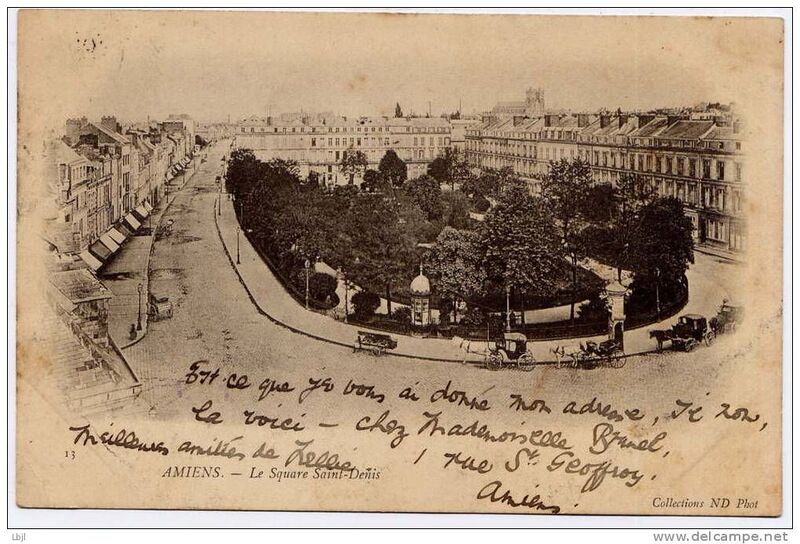 Est-ce que je vous ai donné mon adresse, si non,
la voici - chez Mademoiselle Brunel,
Meilleures amitiés de Nellie
1 rue St. Geoffroy,
Amiens.
13
AMIENS. - Le Square Saint-Denis
Collections ND Phot
Lbjl
© delcampe.net